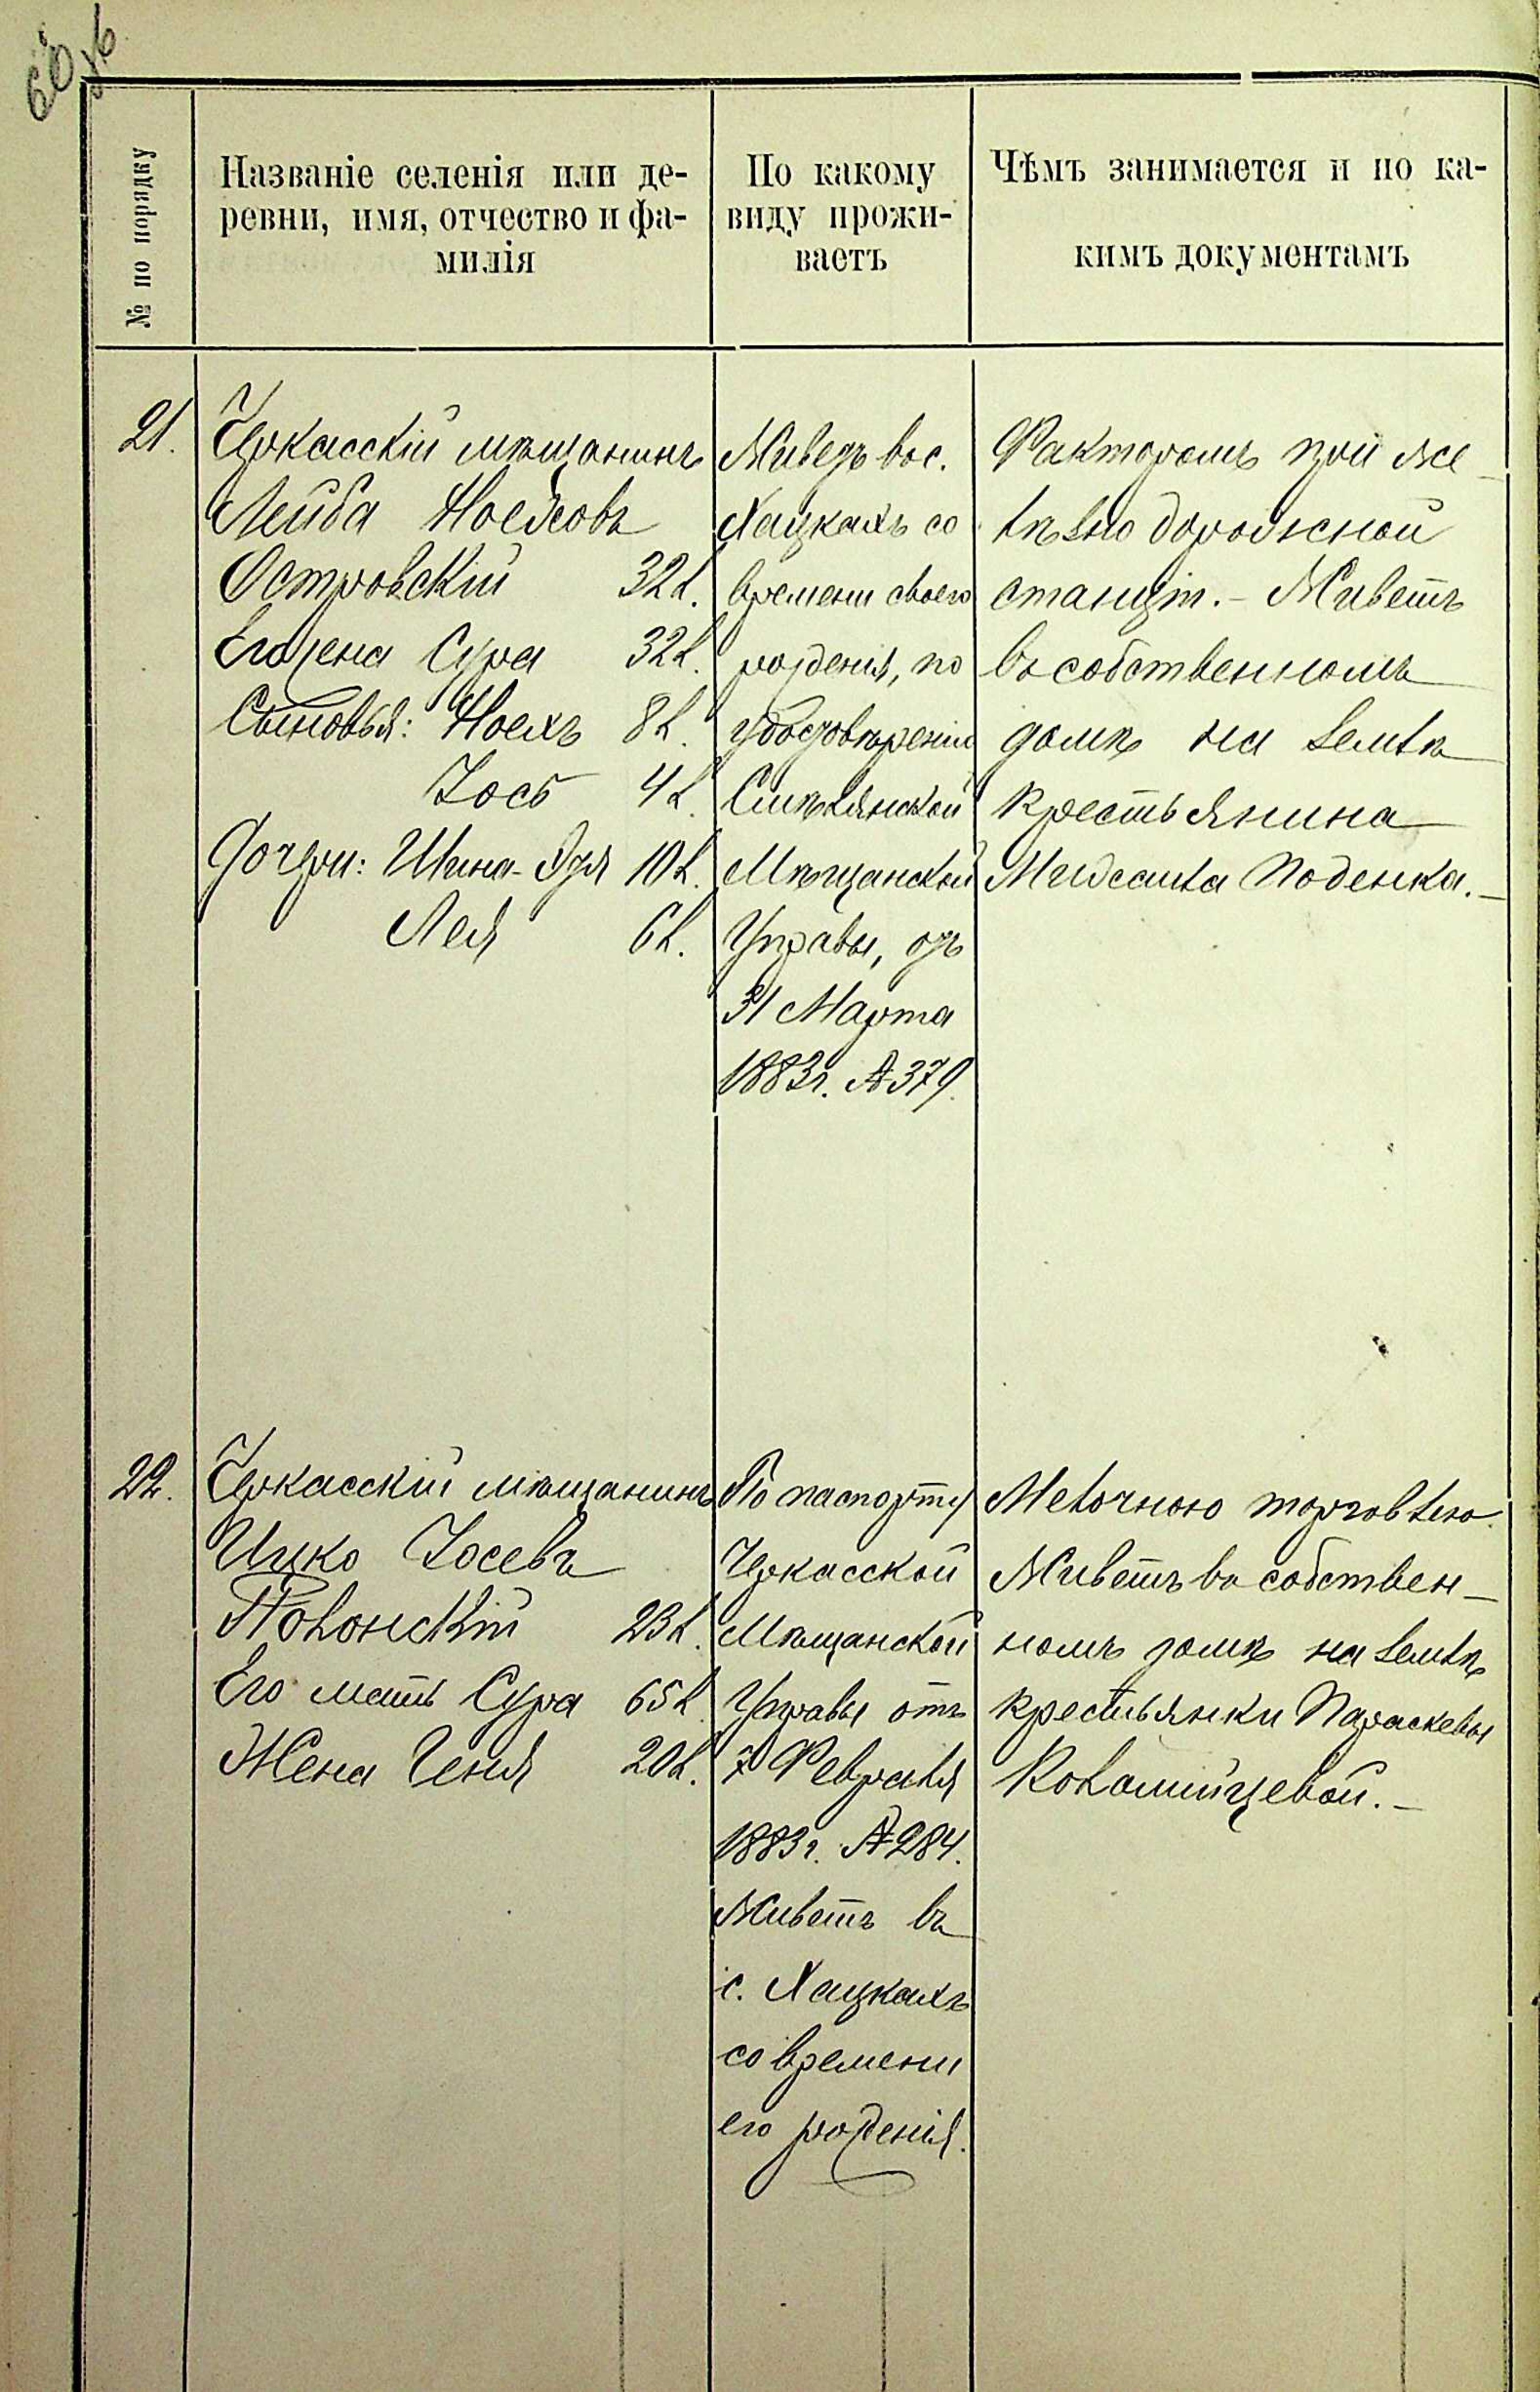 60 об
№ по порядку
Названіе селенія или де-
ревни, имя, отчество и фа-
милія
По какому
виду прожи-
ваетъ
Чѣмъ занимается и по ка-
кимъ документамъ
21.
Черкасскій мѣщанинъ
Лейба Ноеховъ
Островскій 32 л.
Его жена Сура 32 л.
Сыновья: Ноехъ 8 л.
Іось 4 л.
Дочери: Шина-Эдя 10 л.
Лея 6 л.
Живетъ въ с.
Хацкахъ со
времени своего
рожденія, по
удостовѣренію
Смѣлянской
Мѣщанской
Управы, отъ
31 Марта
1883 г. № 379.
Факторомъ при же-
лѣзно дорожной
станціи. - Живетъ
въ собственномъ
домѣ на землѣ
крестьянина
Моденка. -
22.
Черкасскій мѣщанинъ
Ицко Іосевъ
Полонскій 23 л.
Его мать Сура 65 л.
Жена Геня 20 л.
По паспорту
Черкасской
Мѣщанской
Управы отъ
7 Февраля
1883 г. № 284.
Живетъ въ
с. Хацкахъ
со времени
его рожденія.
Мелочною торговлею.
Живетъ въ собствен-
номъ домѣ на землѣ
крестьянки Параскевы
Коломійцевой. -